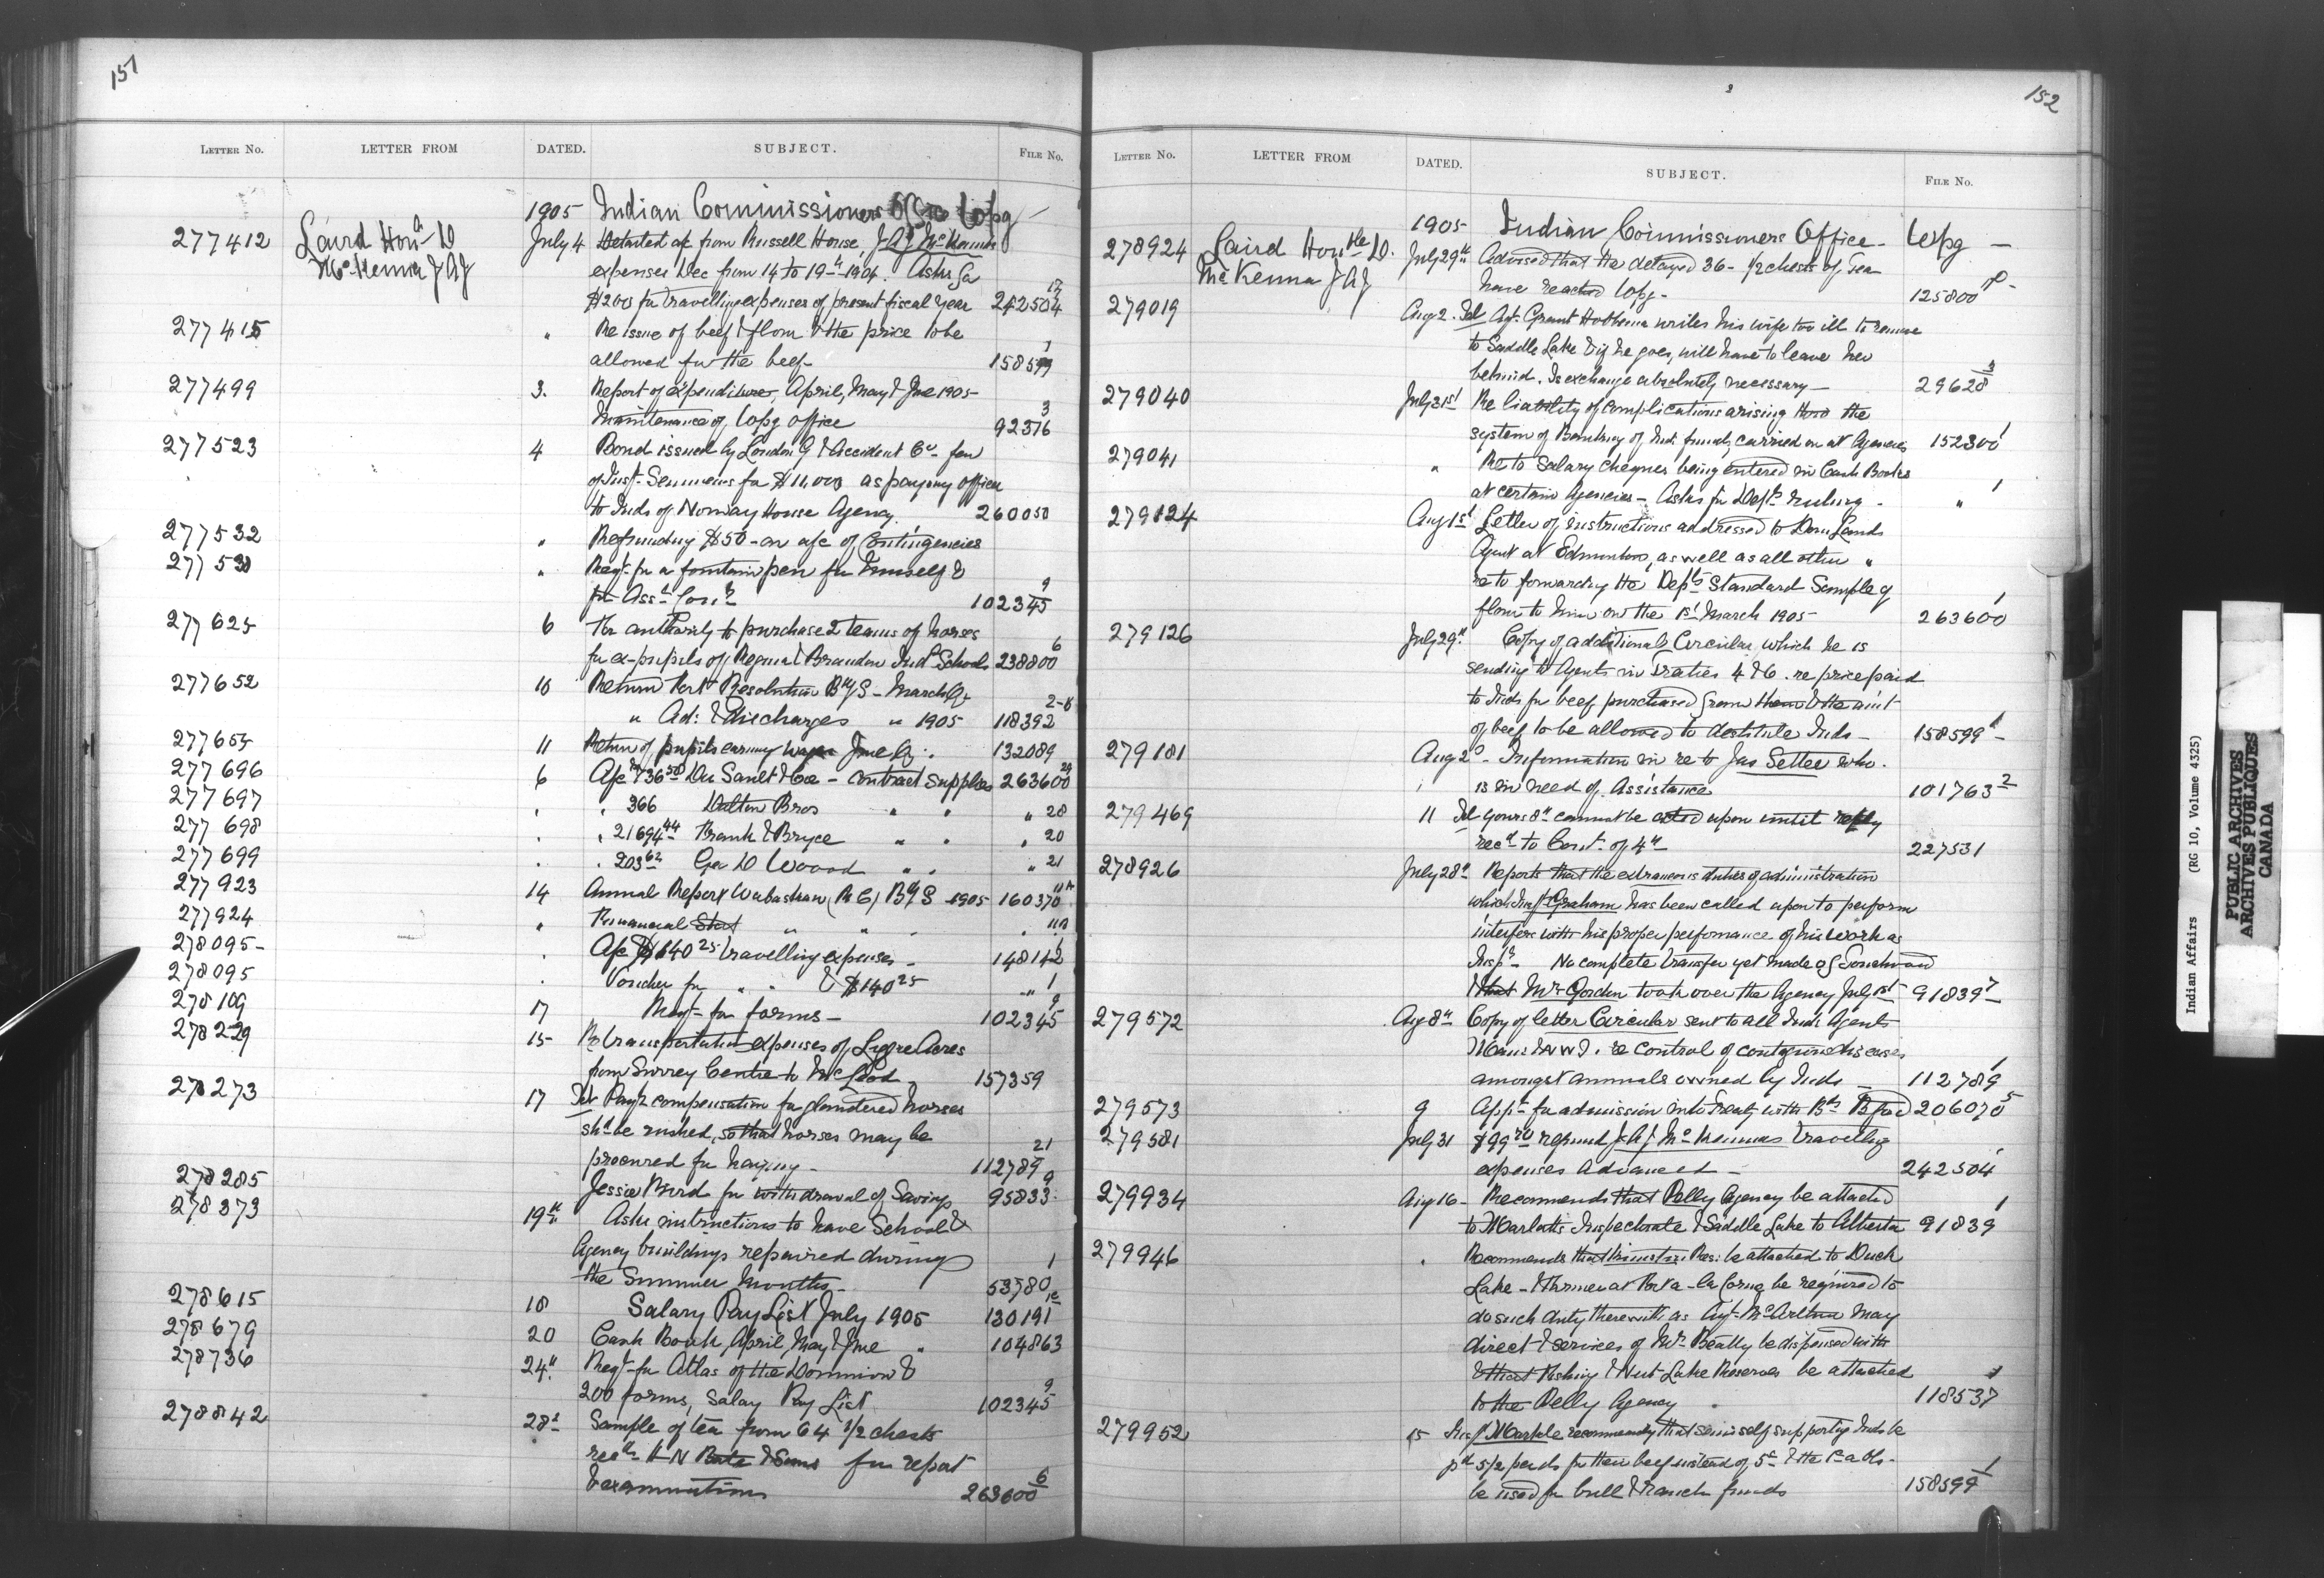 151
LETTER No. LETTER FROM DATED. SUBJECT. FILE No.
1905 Indian Commissioners Office Wpg
277412 Laird Hon. D July 4 Detailed a/c from Russell House, J.A.J. McKenna
McKenna J A J expenses Dec from 14 to 19th 1904. Asks for
$200 for travelling expenses of present fiscal year 242504 17
277415 " Re issue of beef & flour & the price to be
allowed for the beef 158599 1
277499 3. Report of expenditure, April, May & June 1905
Maintenance of Wpg office 92376 3
277523 4 Bond issued by London G & Accident Co - fav
of Inst. Semmens for $11,000 as paying officer
to Inds of Norway House Agency 260050
277532 " Refunding $50 - on a/c of Contingencies
277530 " Reqt. for a fountain pen for himself &
for Asst Comr 102345 9
277625 6 For authority to purchase 2 teams of horses
for ex-pupils of Regina & Brandon Indl Schools 238800 6
277652 10 Return Resolution Bdg S - March Qr
" Ad: & discharges " 1905 118392 2-8
277655 11 Return of pupils earning wages June Qr. 132089
277696 6 A/c $736 50 & Co - contract supplies 263600 24
277697 " 366 Bros " " " 28
277698 " 21694 44 & Bryce " " " 20
277699 " 203 62 Geo D Wood " " " 21
277923 14 Annual Report Wabaskaw (R C) Bdg S 1905 160370 11A
277924 " Financial Stat " " " 11A
278095 " A/c $140 25 travelling expenses - 148142 1
278095 " Voucher for " " & $140 25 " 1
278109 17 Reqt - for forms - 102345 9
278229 15 Re transportation expenses of Acres
from Surrey Centre to McLeod 157359
278273 17 Tel Payt compensation for glandered horses
shd be rushed, so that horses may be
procured for haying - 112789 21
278285 Jessie Bird for withdrawal of Savings 95833 9
278373 19th Asks instructions to have School &
Agency buildings repaired during
the Summer Months 53780 1
278615 18 Salary Pay List July 1905 130191 1c
278679 20 Cash Book, April, May & June " 104863
278736 24th Reqt - for Atlas of the Dominion &
200 forms, Salary Pay List 102345 9
278842 28th Sample of tea from 64 1/2 chests
H N Bate & Sons for report
& examination 263600 6
152
LETTER No. LETTER FROM DATED. SUBJECT. FILE No.
1905 Indian Commissioners Office - Wpg -
278924 Laird Honble D. July 29th Advised that the delayed 36 - 1/2 chests of Tea
McKenna J A J have reached Wpg - 125800
279019 Aug 2. Tel Agt. Grant Hobbema writes his wife too ill to remove
to Saddle Lake & if he goes, will have to leave her
behind. Is exchange absolutely necessary - 29628 3
279040 July 31st Re liability of complications arising the
system of Banking of Ind. funds, carried on at Agencies 152300 1
279041 " Re to Salary cheques being entered in Cash Books
at certain Agencies - Asks for Depts ruling - " 1
279124 Aug 1st Letter of instructions addressed to Dom Lands
Agent at Edmonton, as well as all other "
re to forwarding the Depts Standard Sample of
flour to him on the 1st March 1905 263600 1
279126 July 29th Copy of additional Circular, which he is
sending to Agents in Treaties 4 & 6. re price paid
to Inds for beef purchased from them & the amt
of beef to be allowed to destitute Inds - 158599 1
279181 Aug 2d - Information in re to Jas Settee who
is in need of Assistance 101763 2
279469 11 Tel Yours 8th cannot be acted upon until reply
recd to Comt. of 4th 227531
278926 July 28th Reports that the extraneous duties of administration
which Inspr Graham has been called upon to perform
interfere with his proper performance of his work as
Inspr - No complete transfer yet made of Touchwood
& that Mr Gordon took over the Agency July 1st - 91839 7
279572 Aug 8th Copy of letter Circular sent to all Inds Agents
Man & NWT. re control of contagious diseases
amongst animals owned by Inds - 112789 1
279573 9 Appn for admission into Treaty with Bfd 206070 5
279581 July 31 $99 70 refund J A J McKennas travelling
expenses advanced - 242504 1
279934 Aug 16 - Recommends that Pelly Agency be attached
to Marlatts Inspectorate & Saddle Lake to Alberta 91839 1
279946 " Recommends that Kinistin Res: be attached to Duck
Lake - & farmer at Fort a - la Corne be required to
do such duty therewith as Agt. McArthur may
direct & services of Mr. Beatty be dispensed with
& that Fishing & Nut Lake Reserves be attached
to the Pelly Agency 118537 1
279952 15 Inspr Markle recommends that semi self supporting Inds be
pd 5 1/2 per lb for their beef instead of 5c & the
be used for bull & ranch funds 158599 1
Indian Affairs (RG 10, Volume 4325)
PUBLIC ARCHIVES
ARCHIVES PUBLIQUES
CANADA